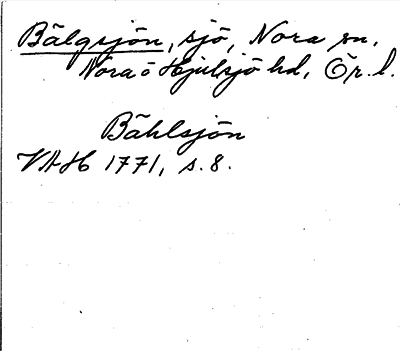 Bälgsjön, sjö, Nora sn.
Nora o Hjulsjö hd, Ör. l.
Bählsjön
VAH 1771, s. 8.